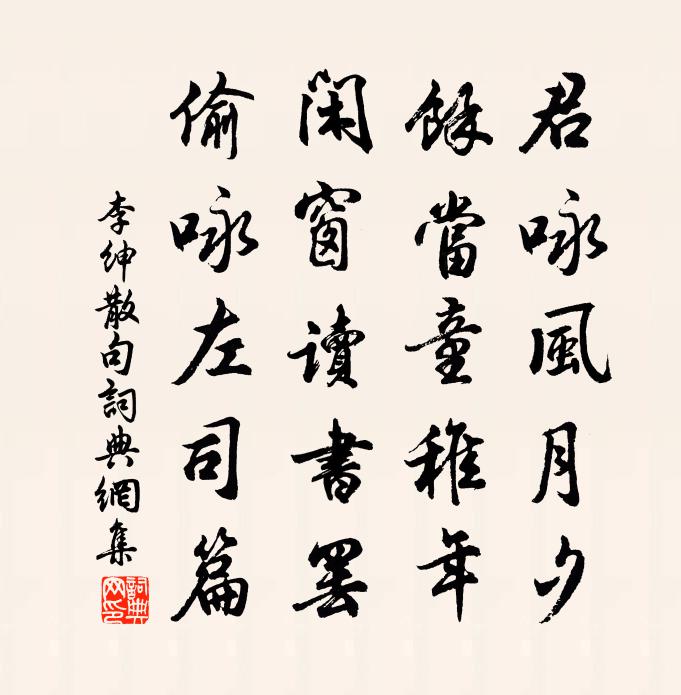 君咏風月夕
餘當童稚年
閑窗讀書罢
偷咏左司篇
李紳散句詞典網集
詞典網印